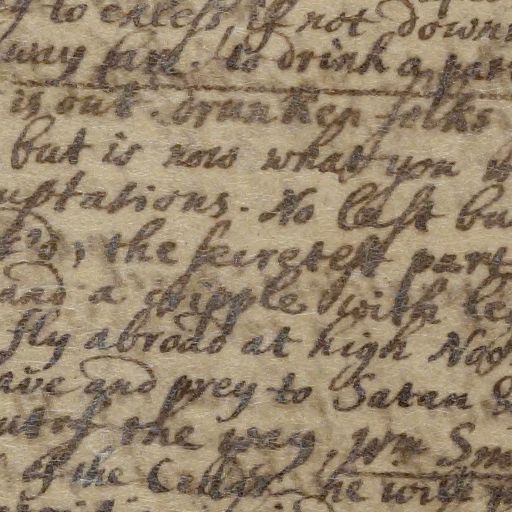 to excess if not down
way to drink a par
is out. drunken folks
but is now what you
ptations. No last bu
the secretest part
and a cripple with le
fly abroad at high Noo
ave and prey to Satan
out of the way, Wm Sm
of the Cellar, he will